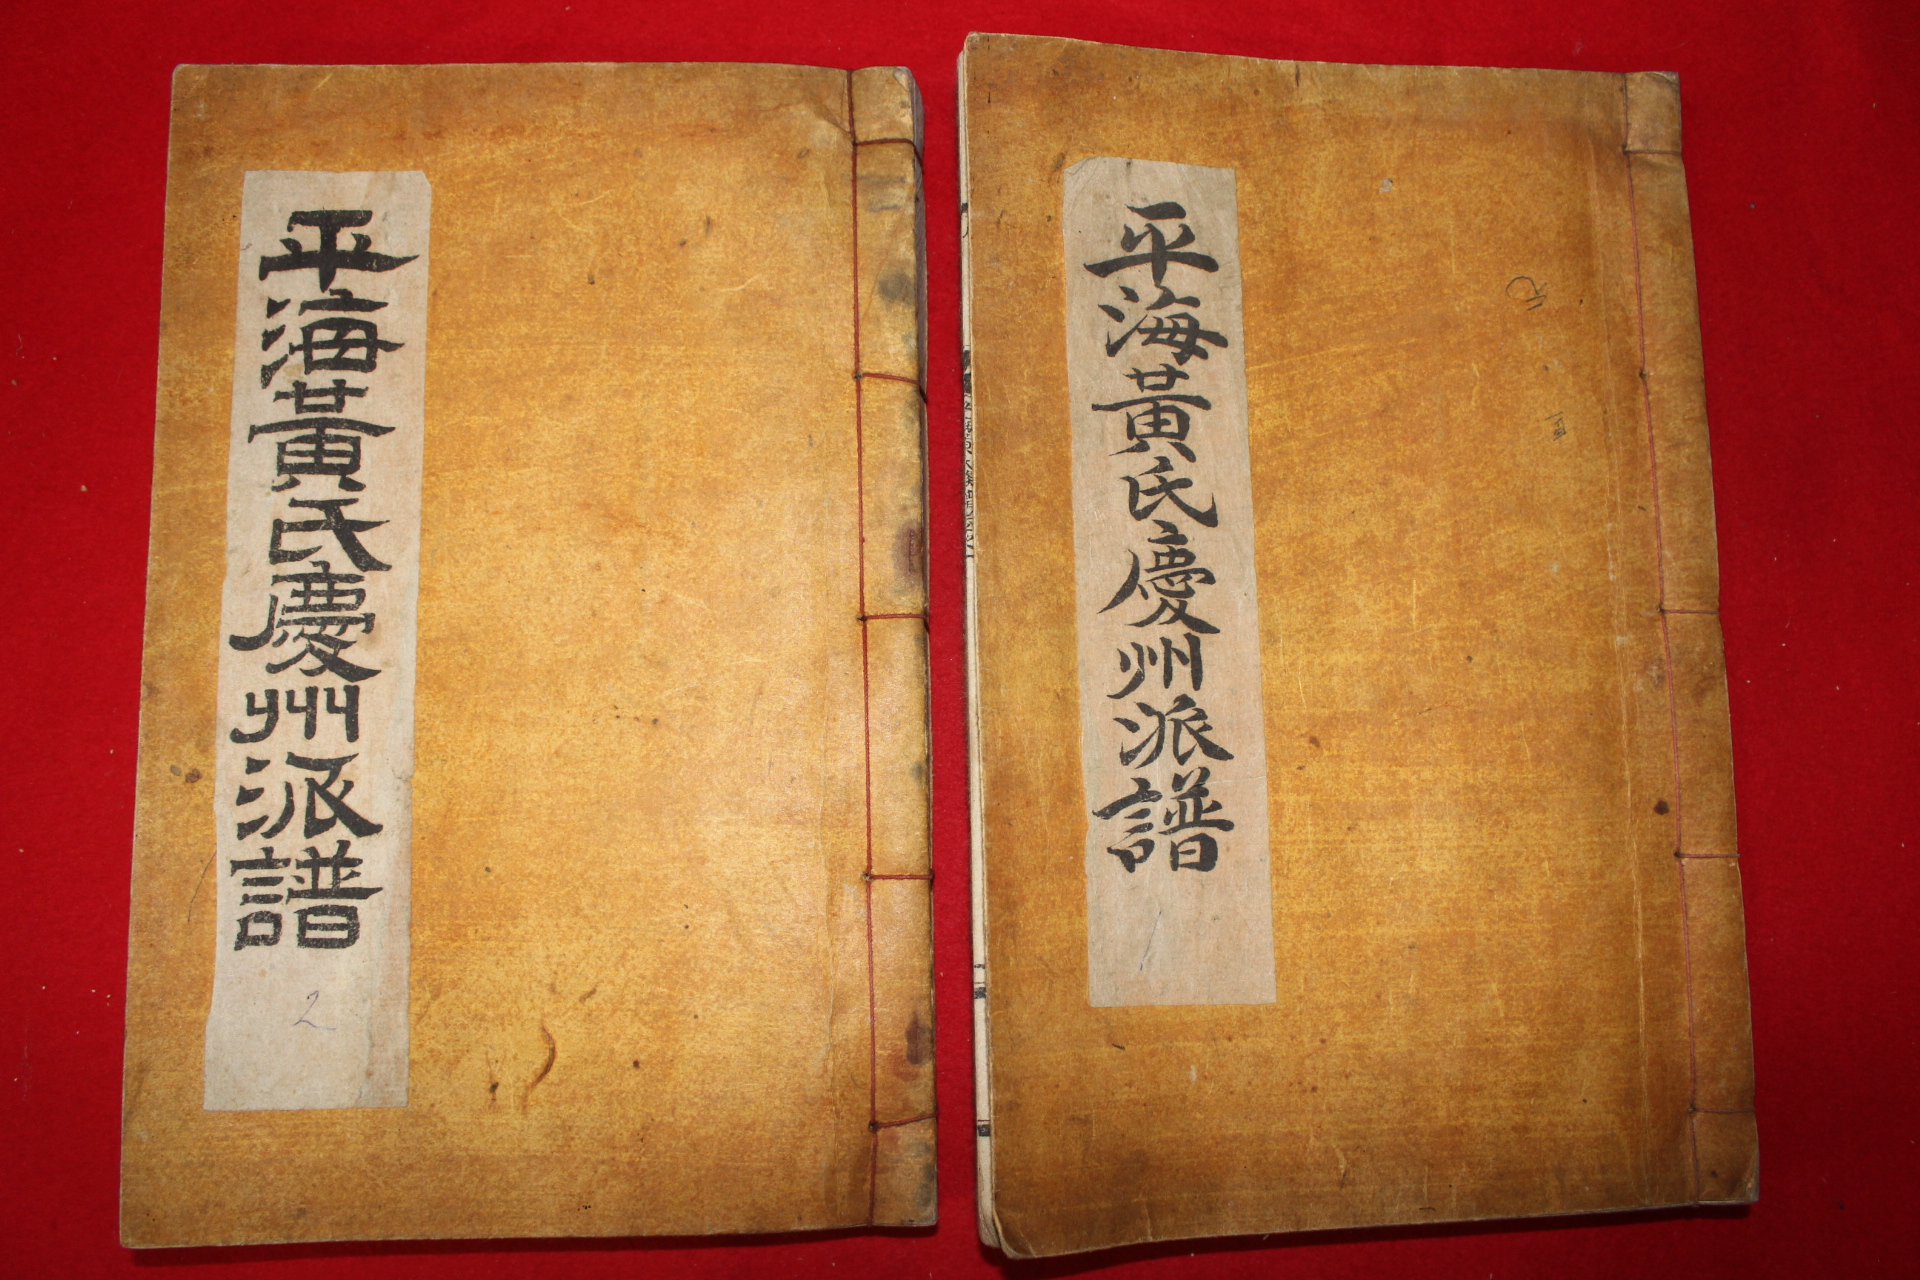 平海黃氏慶州派譜
2
平海黃氏慶州派譜
1